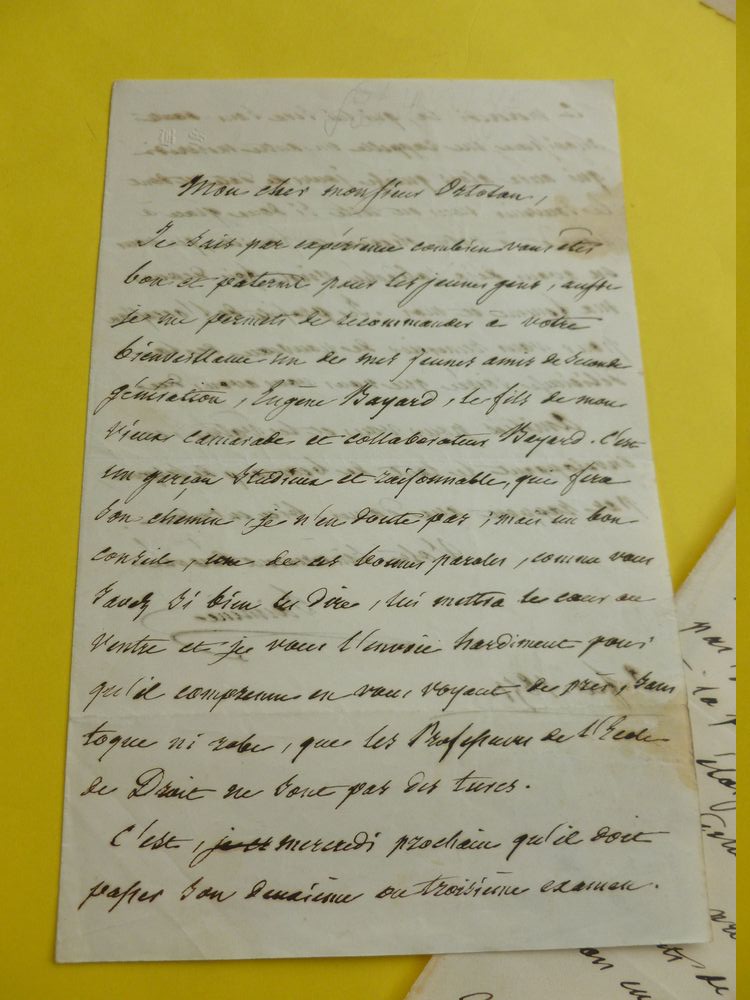 Mon cher monsieur Ortolan,
Je sais par expérience combien vous êtes
bon et paternel pour les jeunes gens, aussi
je me permets de recommander à votre
bienveillance un de mes jeunes amis de seconde
génération, Eugène Bayard, le fils de mon
vieux camarade et collaborateur Bayard. C'est
un garçon studieux et raisonnable, qui fera
son chemin, je n'en doute pas; mais un bon
conseil, une de ces bonnes paroles, comme vous
savez si bien les dire, lui mettra le cœur au
ventre et je vous l'envoie hardiment pour
qu'il comprenne en vous voyant de près, sans
toque ni robe, que les Professeurs de l'Ecole
de Droit ne sont pas des turcs.
C'est, mercredi prochain qu'il doit
passer son deuxième ou troisième examen.